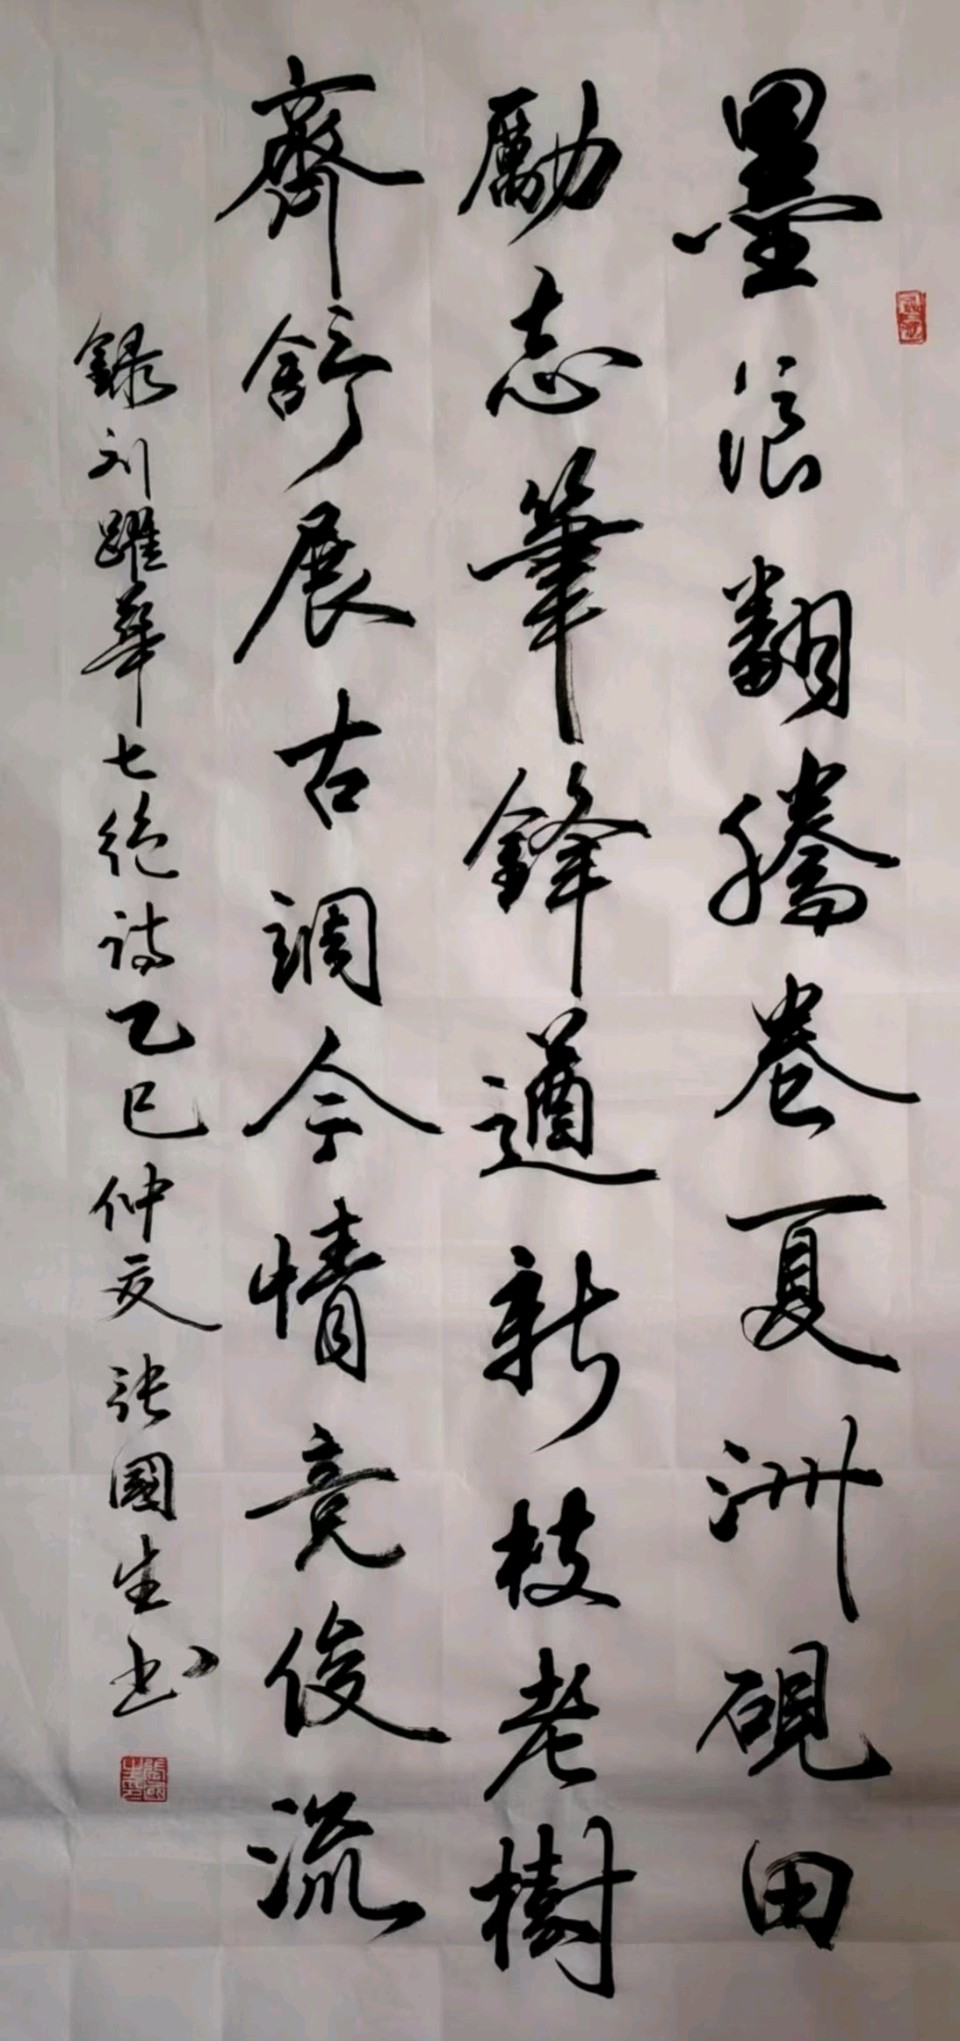 墨浪翻騰卷夏洲硯田
勵志筆鋒遒新枝老樹
齊舒展古調今情竞俊流
録刘躍華七絶詩乙巳仲夏張國生书